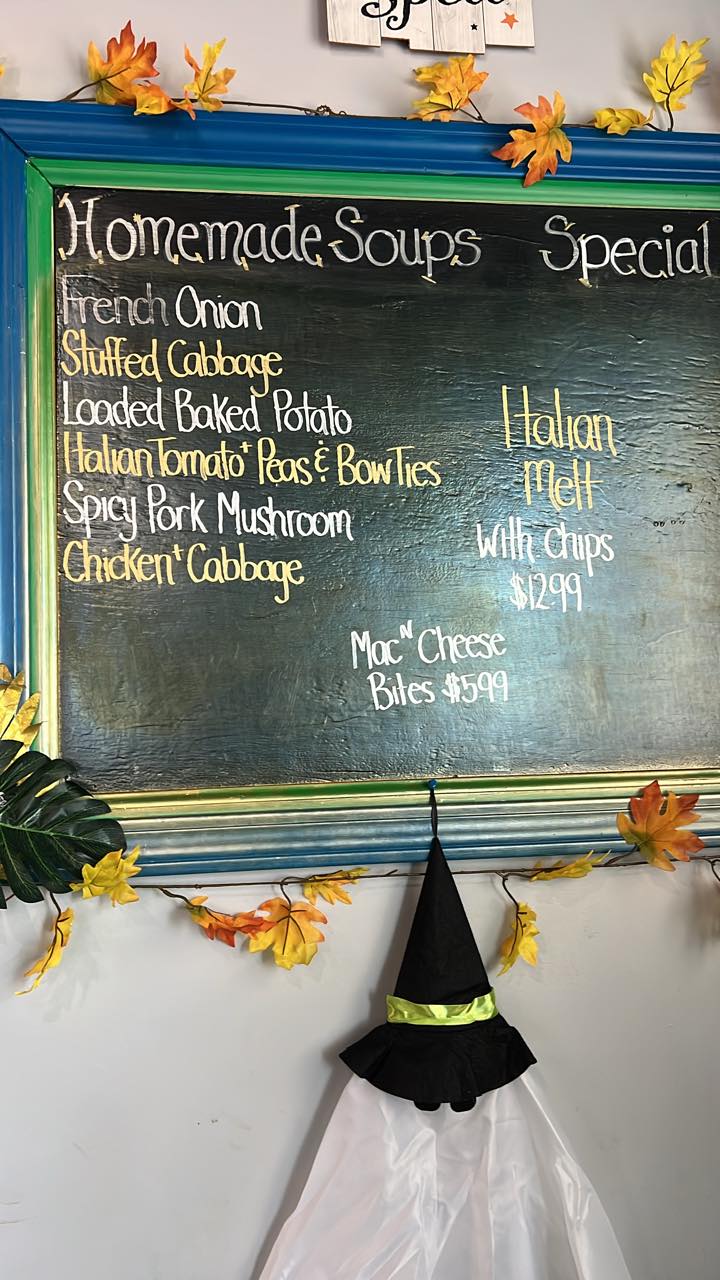 Spell
Homemade Soups Special
French Onion
Stuffed Cabbage
Loaded Baked Potato
Italian Tomato+ Peas & BowTies
Spicy Pork Mushroom
Chicken+ Cabbage
Italian
Melt
With Chips
$12.99
Mac N Cheese
Bites $5.99